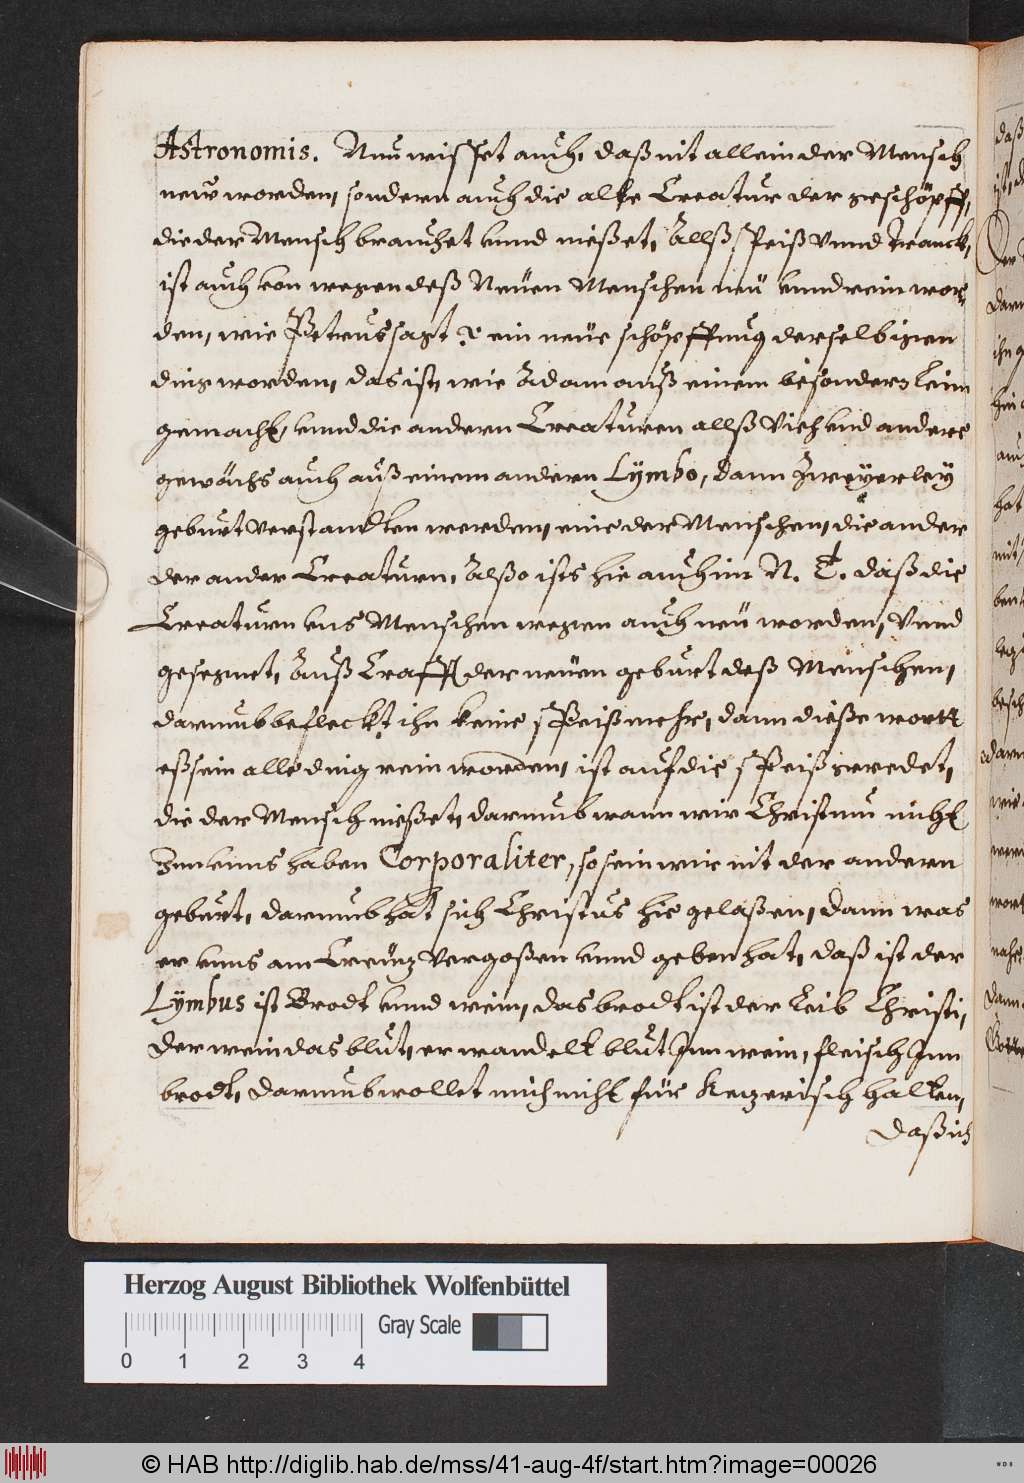 Astronomis. Nun wisset auch, daß nit allein der Mensch
new worden, sondern auch die alte Creatur der geschöpff,
die der Mensch brauchet vnnd nießet, Allß Speiß vnnd Tranck,
ist auch von wegen deß Neüen Menschen neü vnnd rein wor-
den, wie Petrus sagt ein neüe schöpffung derselbigen
ding worden, das ist, wie Adam auß einem besondern leim
gemacht, vnnd die andern Creaturen allß Vieh vnd andere
gewächs auch auß einem andern Lymbo, dann Zweyerley
geburt verstandten werden, eine der Menschen, die ander
der ander Creaturn, Alßo ists hie auch im N. T. daß die
Creaturn vns Menschen wegen auch neü worden, Vnnd
gesegnet, Auß Crafft der neüen geburt deß Menschen,
darumb befleckt ihn keine Speiß mehr, dann dieße wortt
eß sein alle ding rein worden, ist auf die Speiß geredet,
die der Mensch nießet, darumb wann wir Christum nicht
Inn vnns haben Corporaliter, so sein wir nit der andern
geburt, darumb hat sich Christus hie gelaßen, dann was
er vnns am Creütz vergoßen vnnd geben hat, daß ist der
Lymbus ist Brodt vnnd wein, das brodt ist der Leib Christi,
der wein das blut, er wandelt blut Inn wein, fleisch Inn
brodt, darumb wollet mich nicht für Ketzerisch halten,
daß ich
Herzog August Bibliothek Wolfenbüttel
Gray Scale
0 1 2 3 4
© HAB http://diglib.hab.de/mss/41-aug-4f/start.htm?image=00026